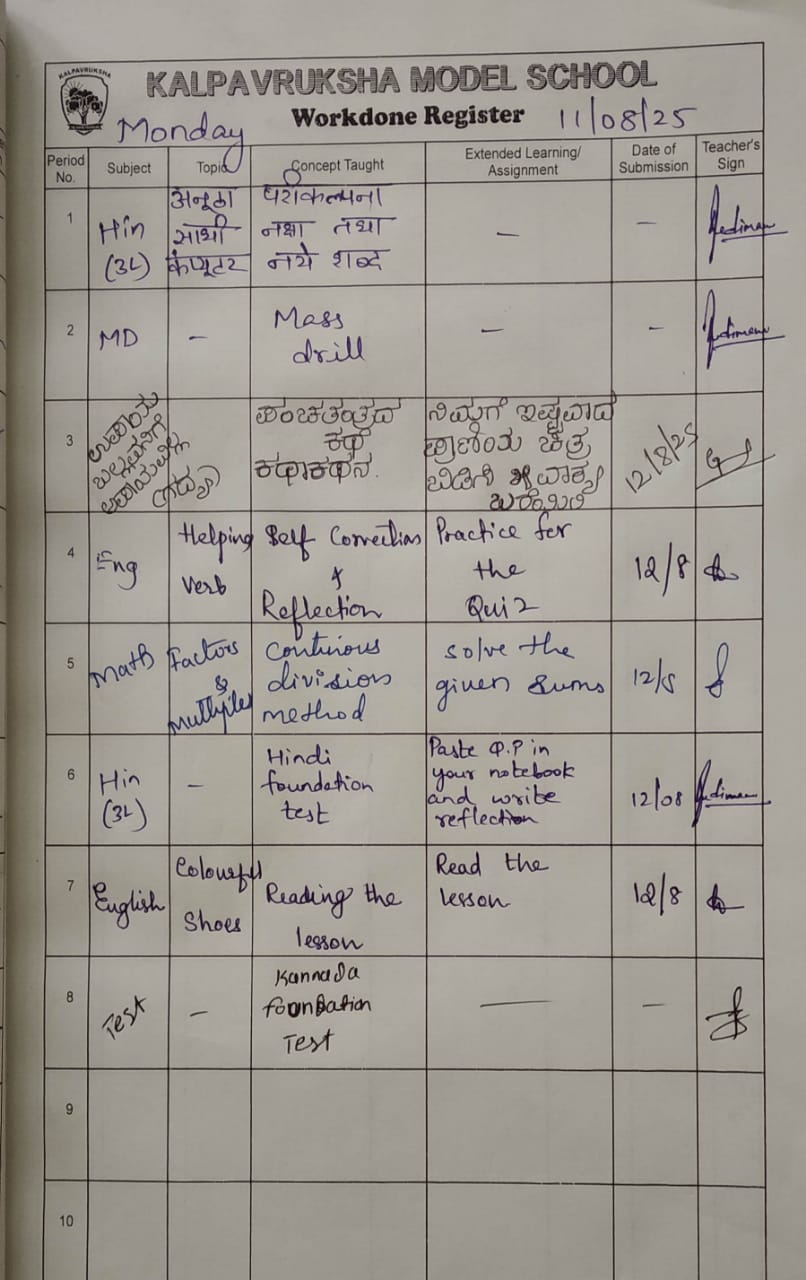 KALPAVRUKSHA
KALPAVRUKSHA MODEL SCHOOL
Workdone Register
Monday
11/08/25
Period No.
Subject
Topic
Concept Taught
Extended Learning/ Assignment
Date of Submission
Teacher's Sign
1
Hin
(3L)
अनूठा
साथी
कंप्यूटर
परिकल्पना
नक्षा तथा
नये शब्द
—
—
2
MD
-
Mass
drill
—
-
3
ಉಪಾಯ
ಬಲ್ಲವನಿಗೆ
ಅಪಾಯವಿಲ್ಲ
(ಗದ್ಯ)
ಪಂಚತಂತ್ರದ
ಕಥೆ
ಕಥಾಕಥನ.
ನಿಮಗೆ ಇಷ್ಟವಾದ
ಪ್ರಾಣಿಯ ಚಿತ್ರ
ಬಿಡಿಸಿ ವಾಕ್ಯ
ಬರೆಯಿರಿ
12/8/25
4
Eng
Helping
verb
Self Correction
&
Reflection
Practice for
the
Quiz
12/8
5
Math
Factors
&
multiples
Continous
division
method
solve the
given sums
12/8
6
Hin
(3L)
-
Hindi
foundation
test
Paste Q.P in
your notebook
and write
reflection
12/08
7
English
Colourful
Shoes
Reading the
lesson
Read the
lesson
12/8
8
Test
-
Kannada
foundation
Test
—
—
9
10